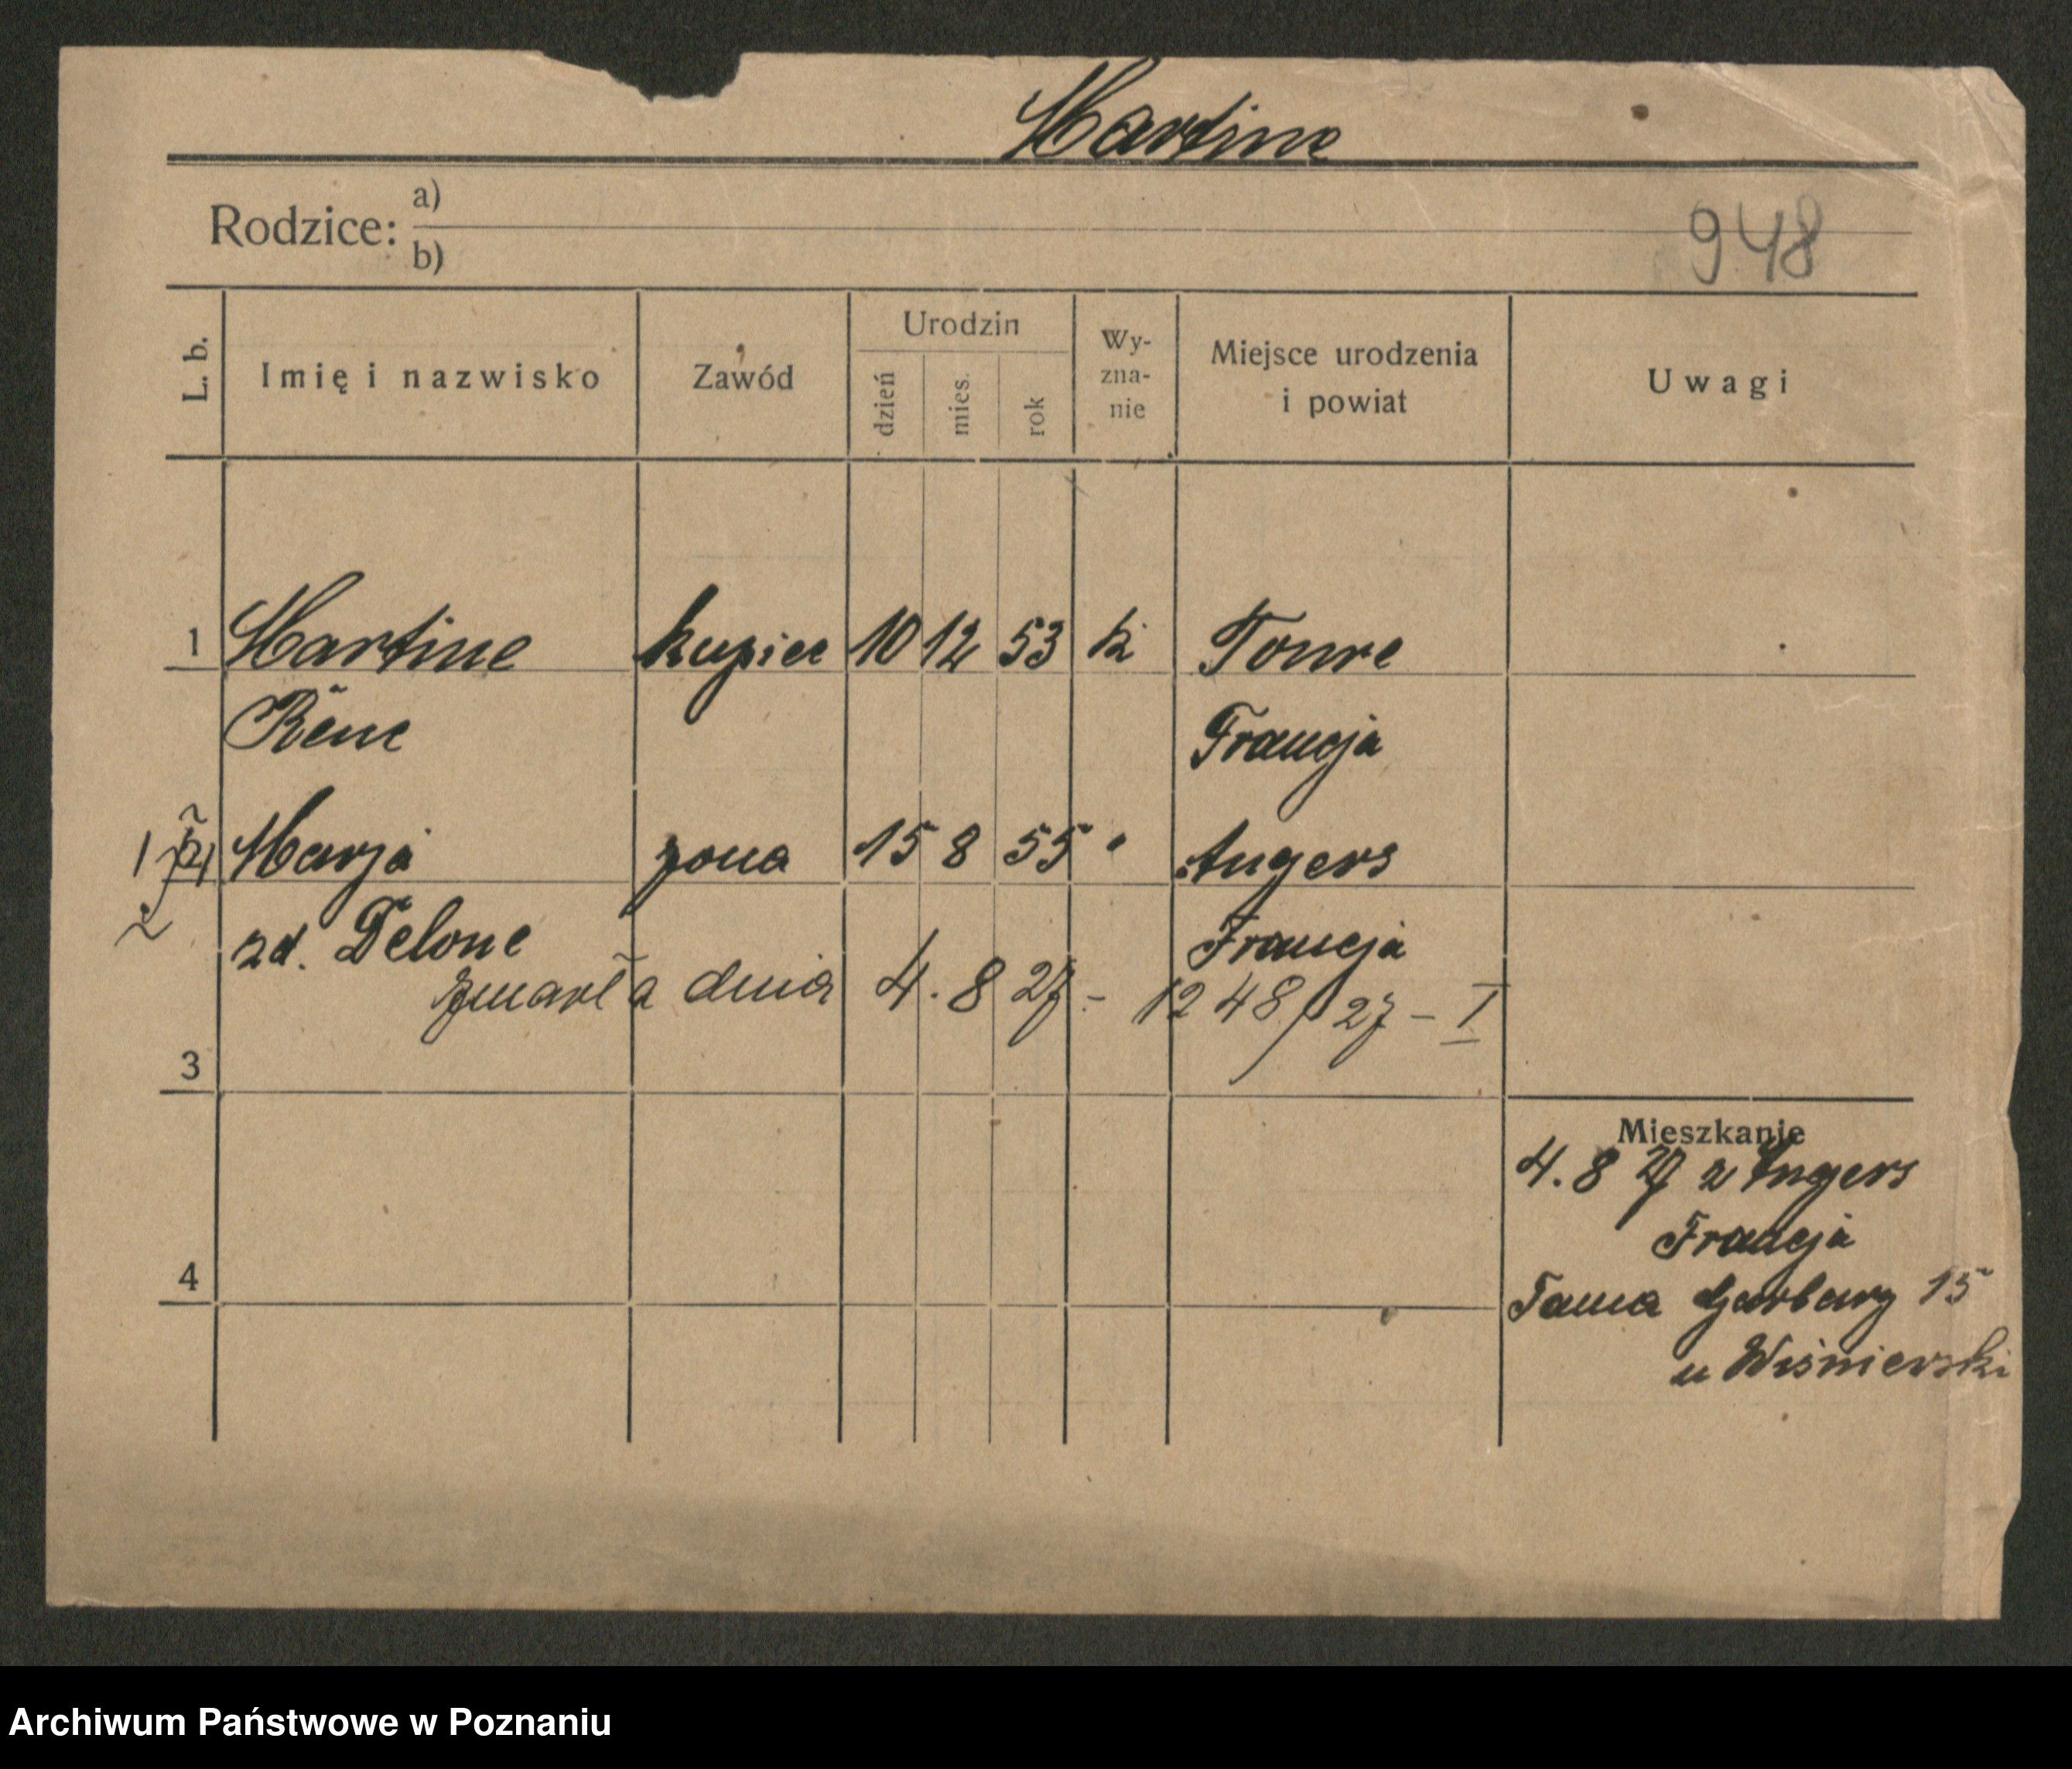 Martine
Rodzice: a)
b)
948
L. b. Imię i nazwisko Zawód Urodzin dzień mies. rok Wy-zna-nie Miejsce urodzenia i powiat Uwagi
1 Martine kupiec 10 12 53 k Tonre
Rene Francja
Marja żona 15 8 55 " Angers
zd. Delone Francja
zmarła dnia 4. 8 27 - 1248/27 - I
3
Mieszkanie
4. 8 27 z Angers
Francja
4
Tama Garbary 15
u Wiśniewski
Archiwum Państwowe w Poznaniu